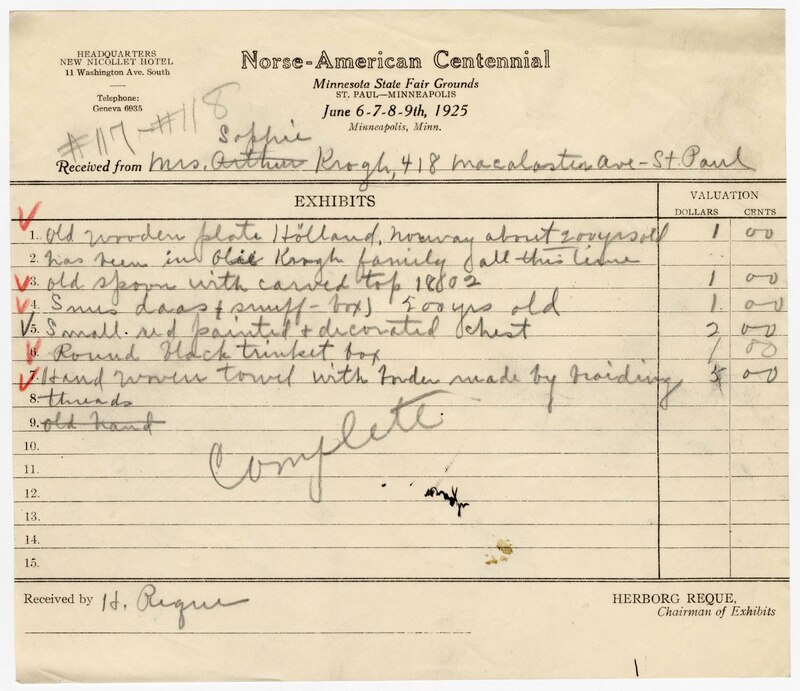 HEADQUARTERS
NEW NICOLLET HOTEL
11 Washington Ave. South
Telephone:
Geneva 6935
Norse-American Centennial
Minnesota State Fair Grounds
ST. PAUL—MINNEAPOLIS
June 6-7-8-9th, 1925
Minneapolis, Minn.
#117-#118
Sophie
Received from Mrs. Arthur Krogh, 418 Macalaster Ave-St. Paul
EXHIBITS VALUATION
DOLLARS CENTS
1. Old wooden plate Hölland, Norway about 200 yrs old 1 00
2. has been in Krogh family all this time
3. old spoon with carved top 1802 1 00
4. Snus daas (snuff-box) 200 yrs old 1 00
5. Small red painted + decorated chest 2 00
6. Round black trinket box 1 00
7. Hand woven towel with border made by braiding 5 00
8. threads
9. old hand
10.
11.
Complete
12.
13.
14.
15.
Received by H. Reque
HERBORG REQUE,
Chairman of Exhibits